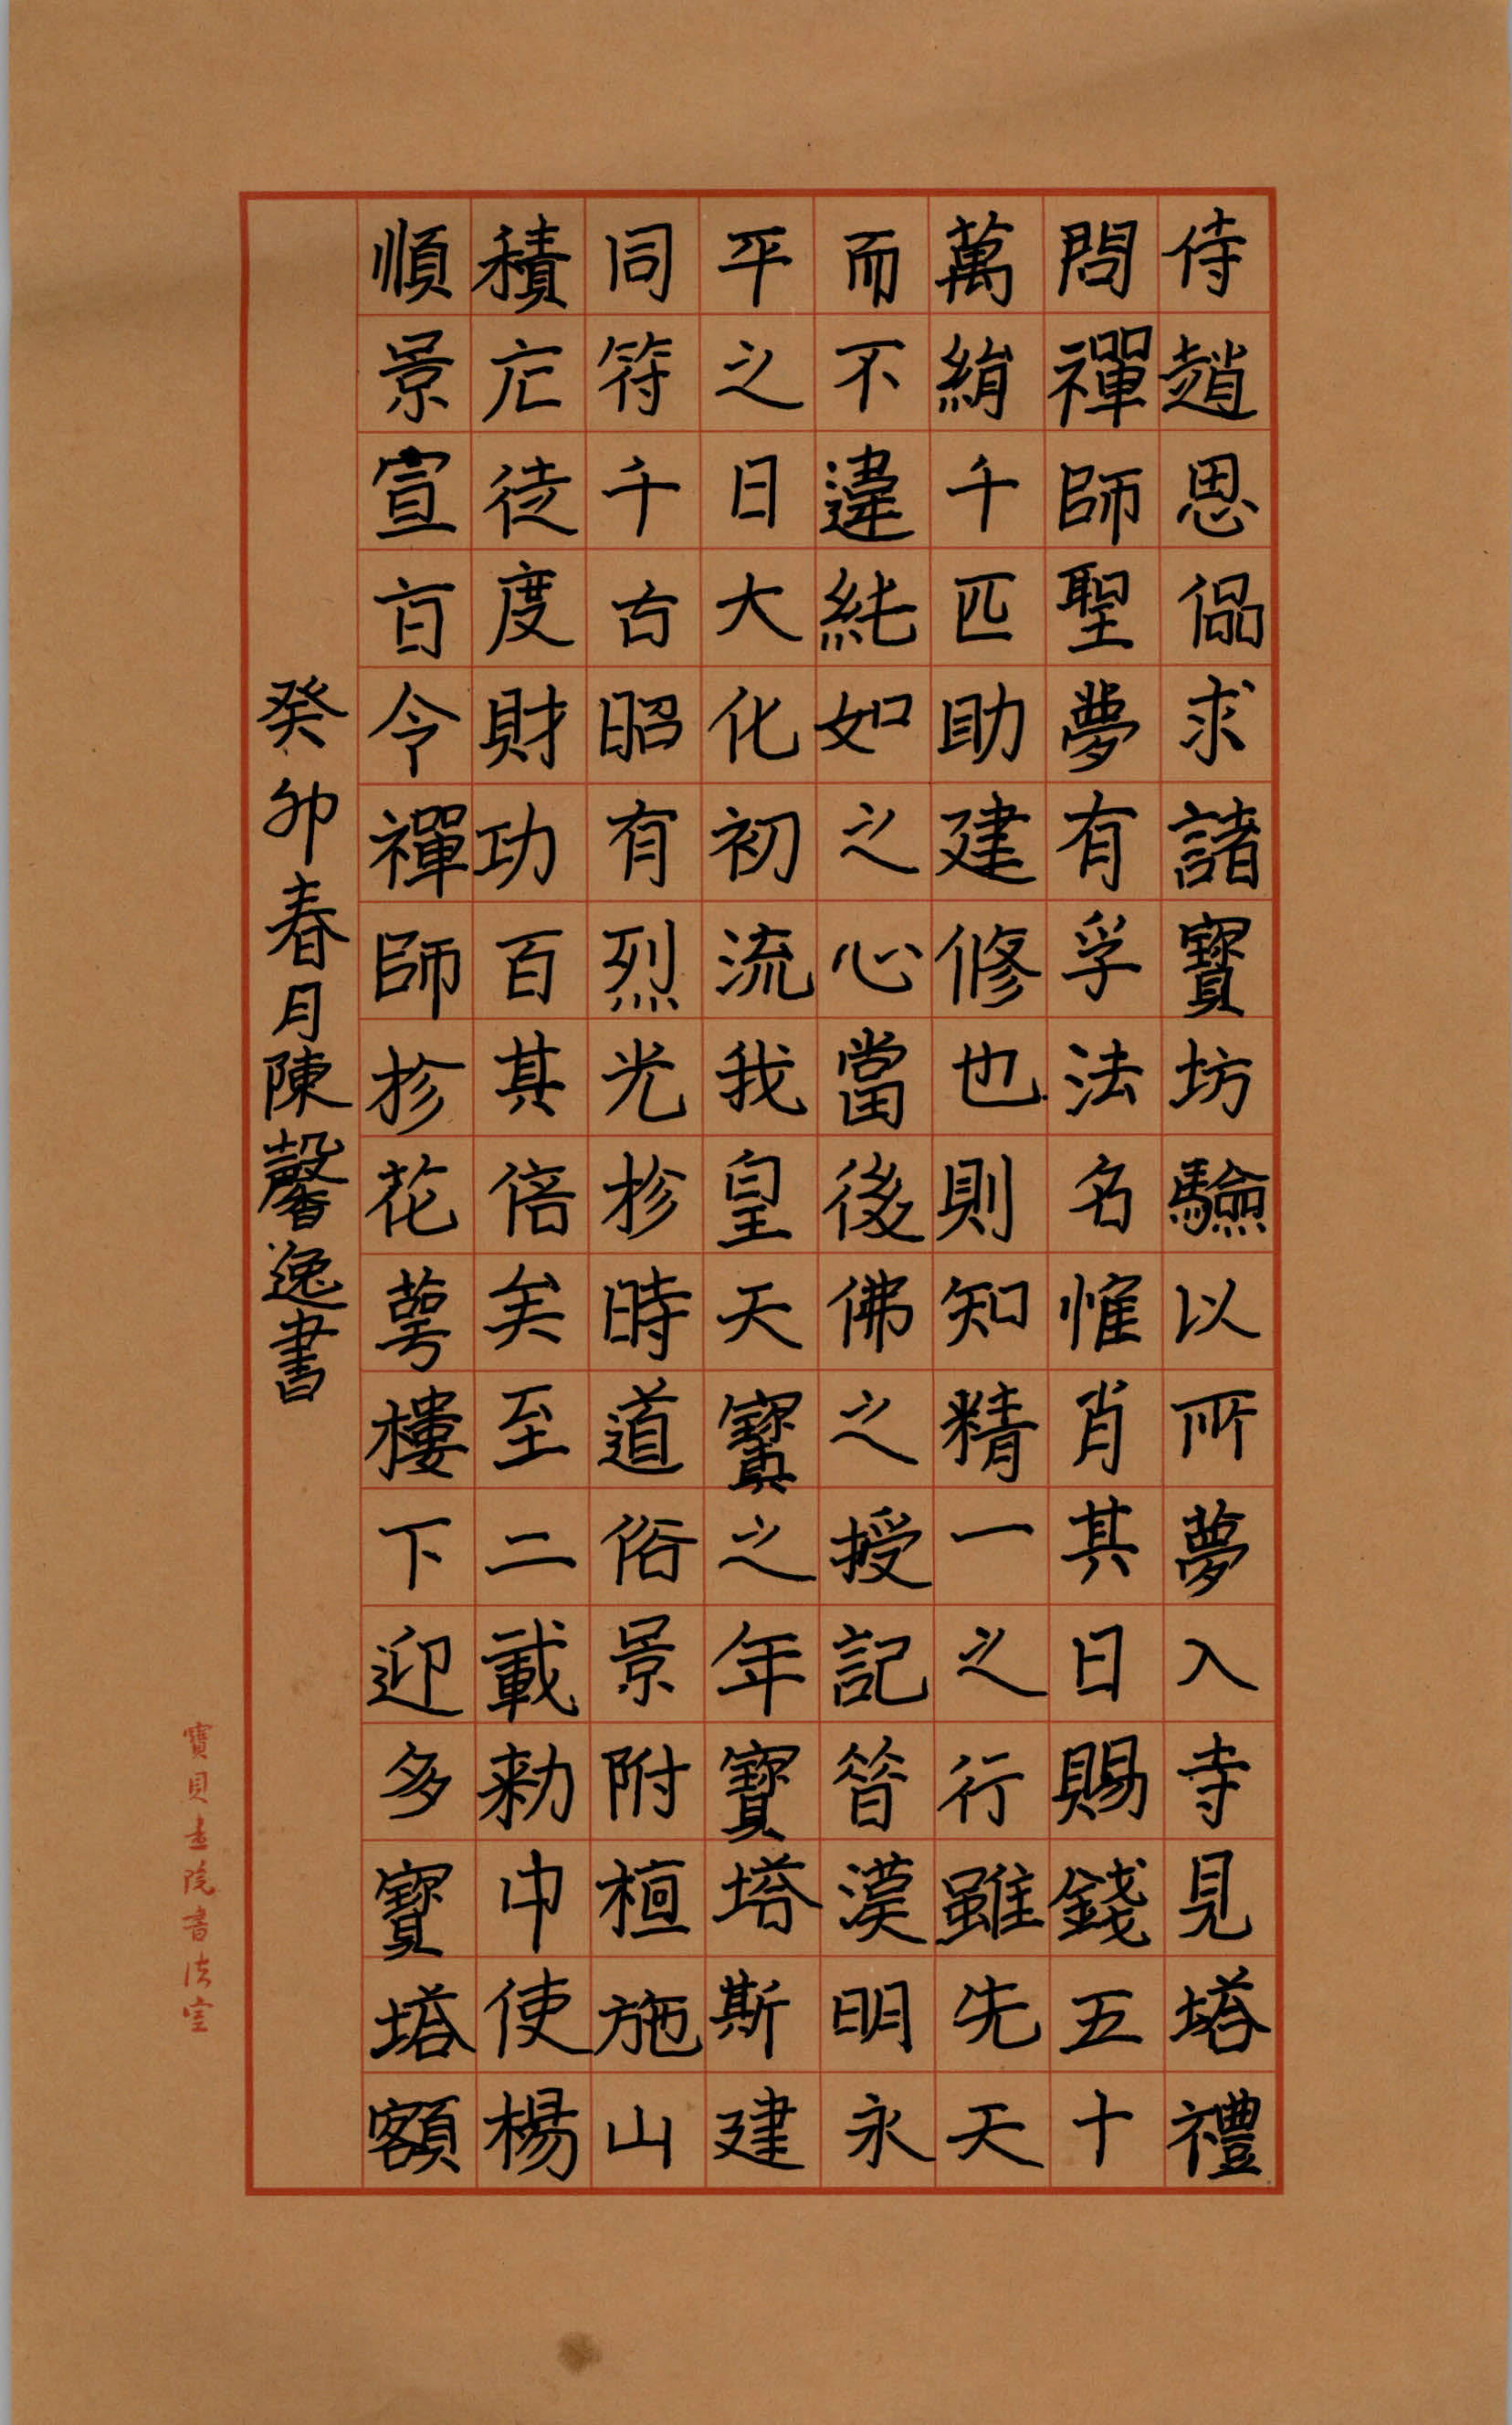 侍趙思侃求諸寶坊驗以所夢入寺見塔禮
問禪師聖夢有孚法名惟肖其日賜錢五十
萬絹千匹助建修也則知精一之行雖先天
而不違純如之心當後佛之授記昔漢明永
平之日大化初流我皇天寶之年寶塔斯建
同符千古昭有烈光於時道俗景附檀施山
積庀徒度財功百其倍矣至二載敕中使楊
順景宣旨令禪師於花萼樓下迎多寶塔額
癸卯春月陳馨逸書
寶貝畫院書法室